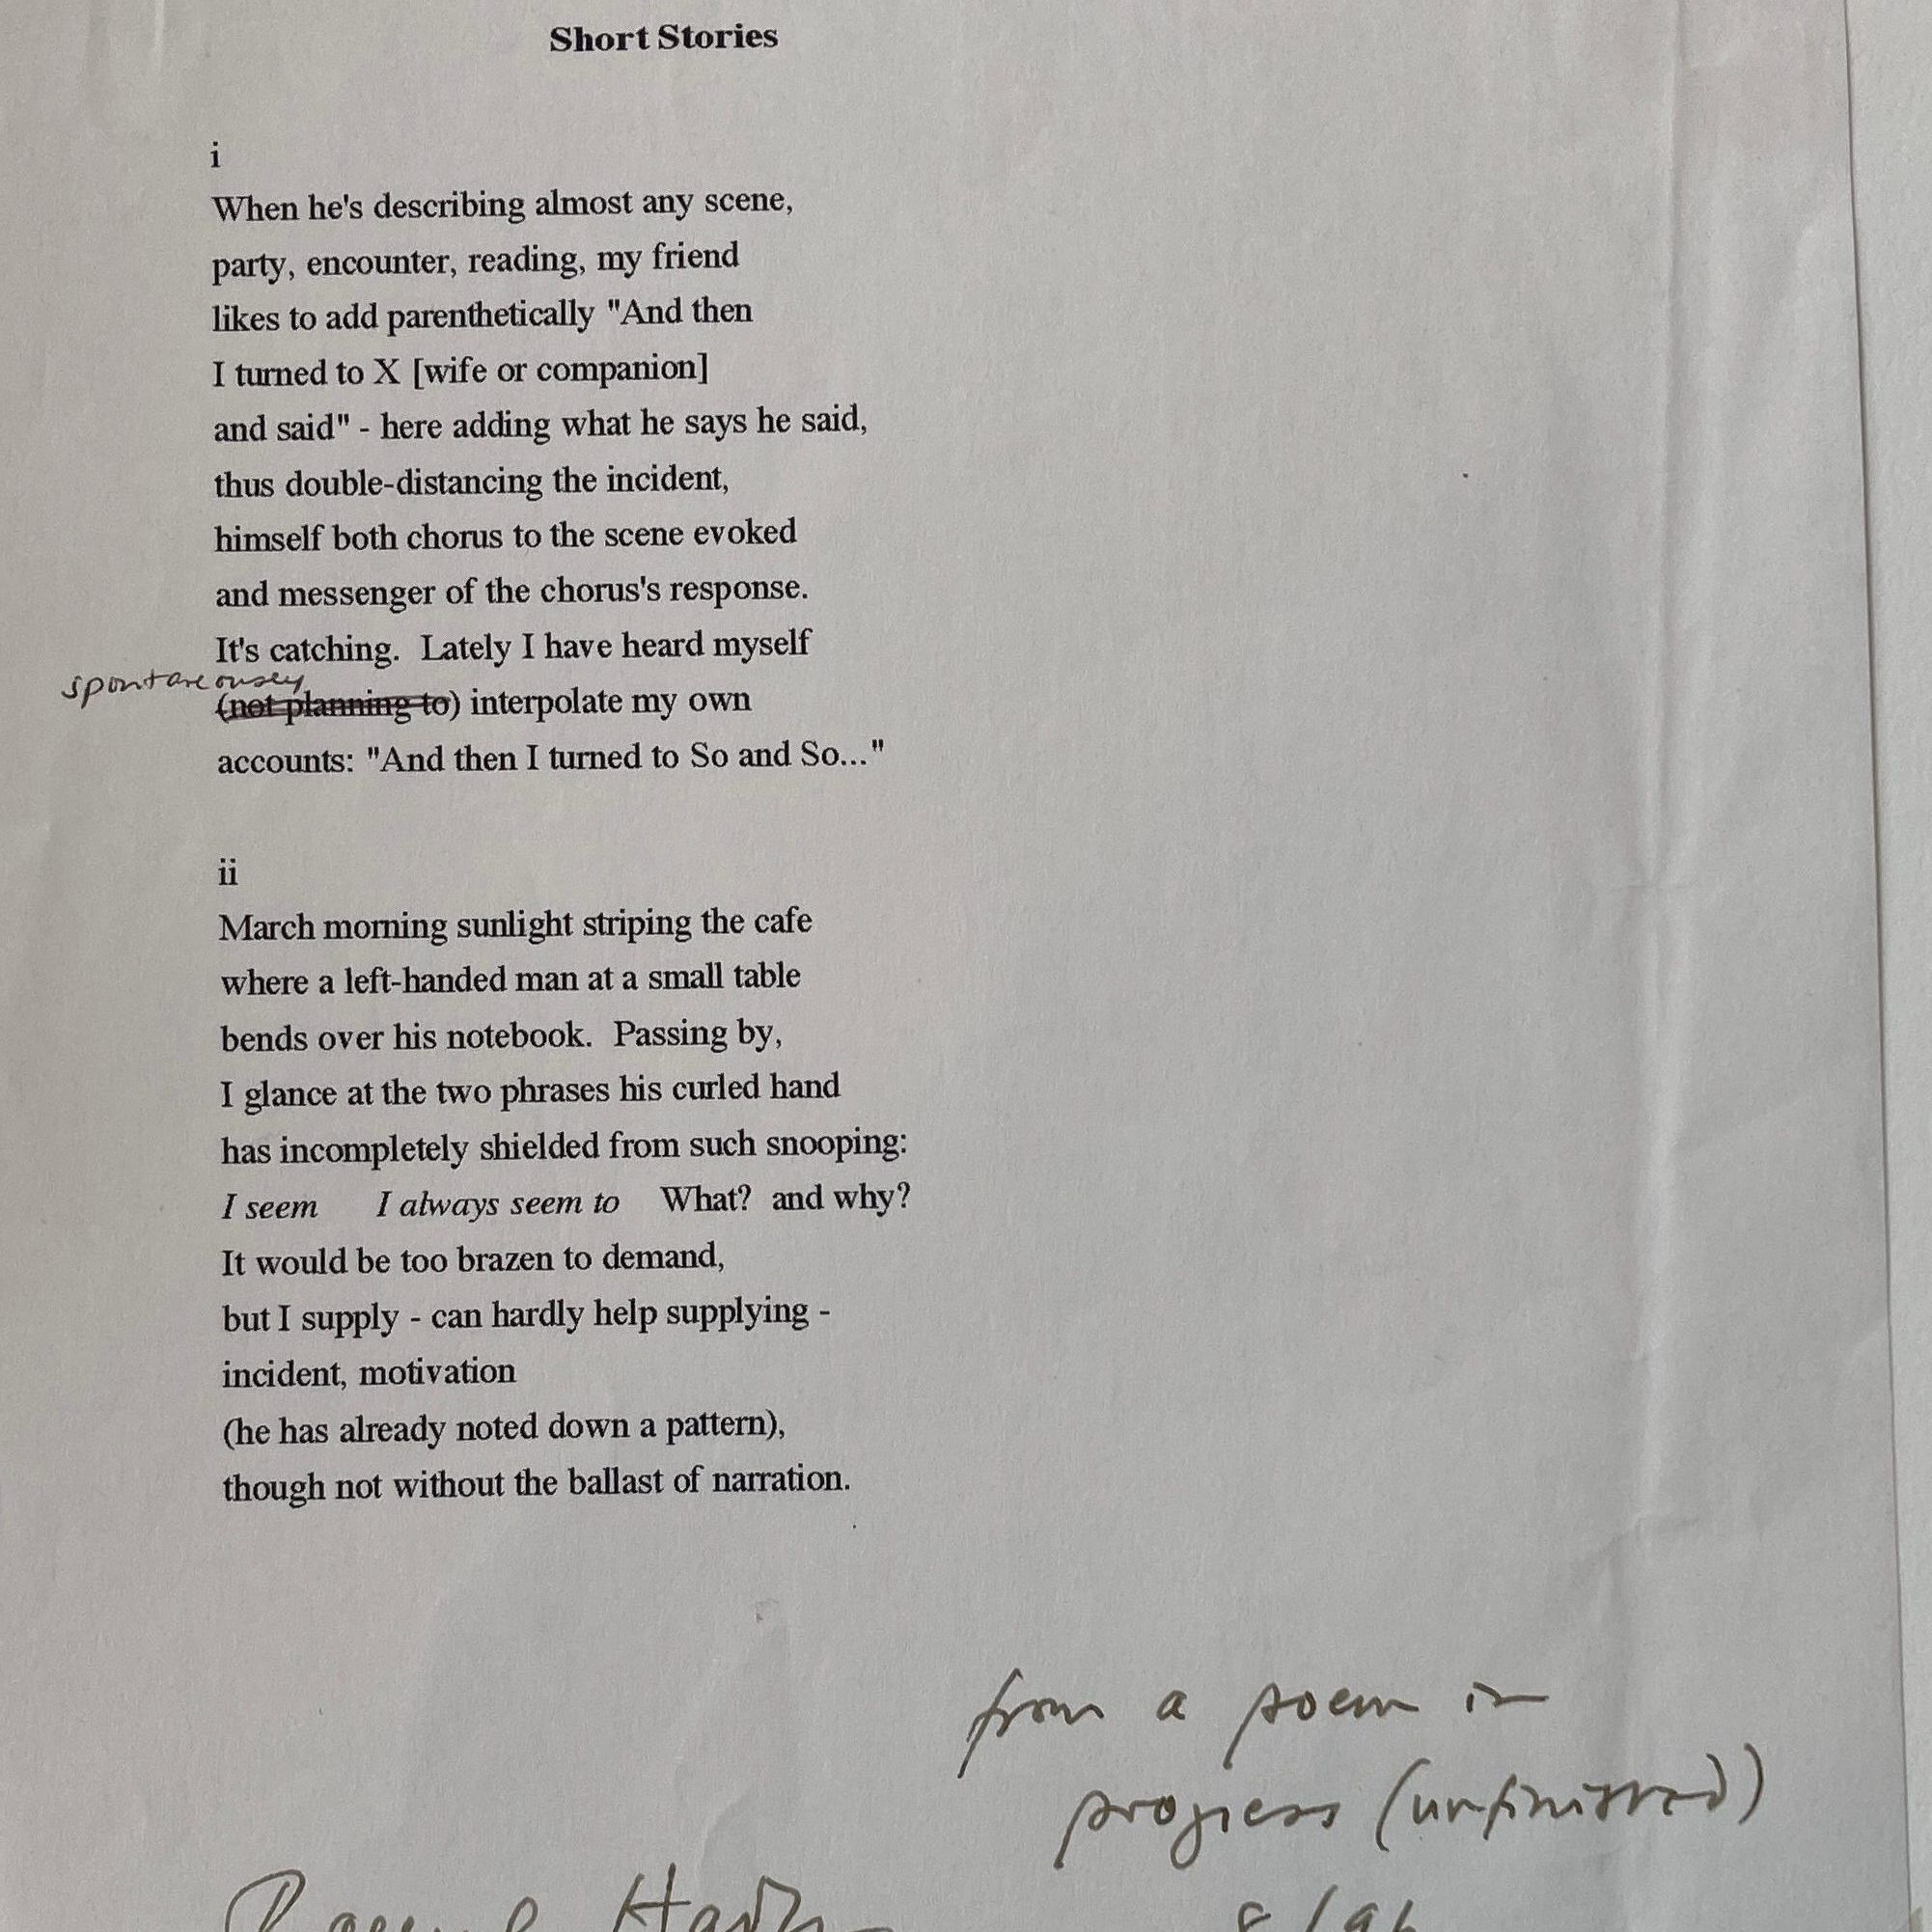 Short Stories
i
When he's describing almost any scene,
party, encounter, reading, my friend
likes to add parenthetically "And then
I turned to X [wife or companion]
and said" - here adding what he says he said,
thus double-distancing the incident,
himself both chorus to the scene evoked
and messenger of the chorus's response.
It's catching.  Lately I have heard myself
spontaneously
(not planning to) interpolate my own
accounts: "And then I turned to So and So..."
ii
March morning sunlight striping the cafe
where a left-handed man at a small table
bends over his notebook.  Passing by,
I glance at the two phrases his curled hand
has incompletely shielded from such snooping:
I seem     I always seem to     What?  and why?
It would be too brazen to demand,
but I supply - can hardly help supplying -
incident, motivation
(he has already noted down a pattern),
though not without the ballast of narration.
from a poem in
progress (unfinished)
8/96